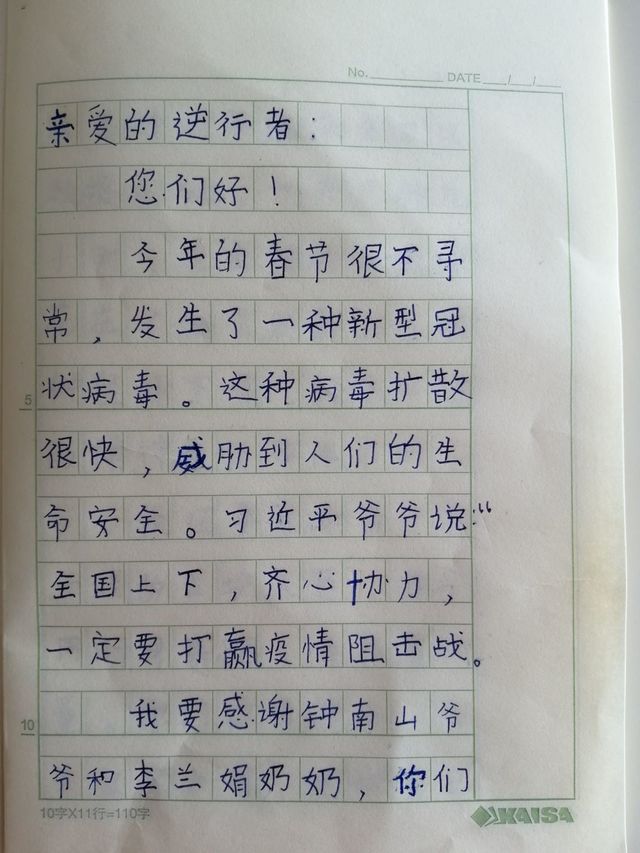 No. DATE / /
亲爱的逆行者：
您们好！
今年的春节很不寻
常，发生了一种新型冠
状病毒。这种病毒扩散
5
很快，威胁到人们的生
命安全。习近平爷爷说：“
全国上下，齐心协力，
一定要打赢疫情阻击战。
我要感谢钟南山爷
10
爷和李兰娟奶奶，你们
10字X11行=110字 KAISA